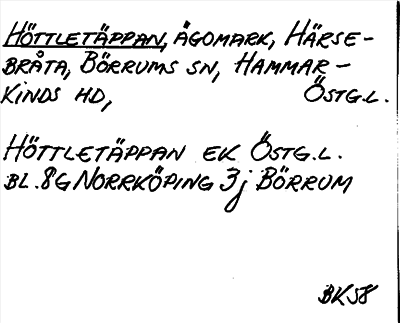 HÖTTLETÄPPAN, ÄGOMARK, HÄRSE-
BRÅTA, BÖRRUMS SN, HAMMAR-
KINDS HD, ÖSTG.L.
HÖTTLETÄPPAN EK ÖSTG.L.
BL. 8G NORRKÖPING 3j BÖRRUM
BK58